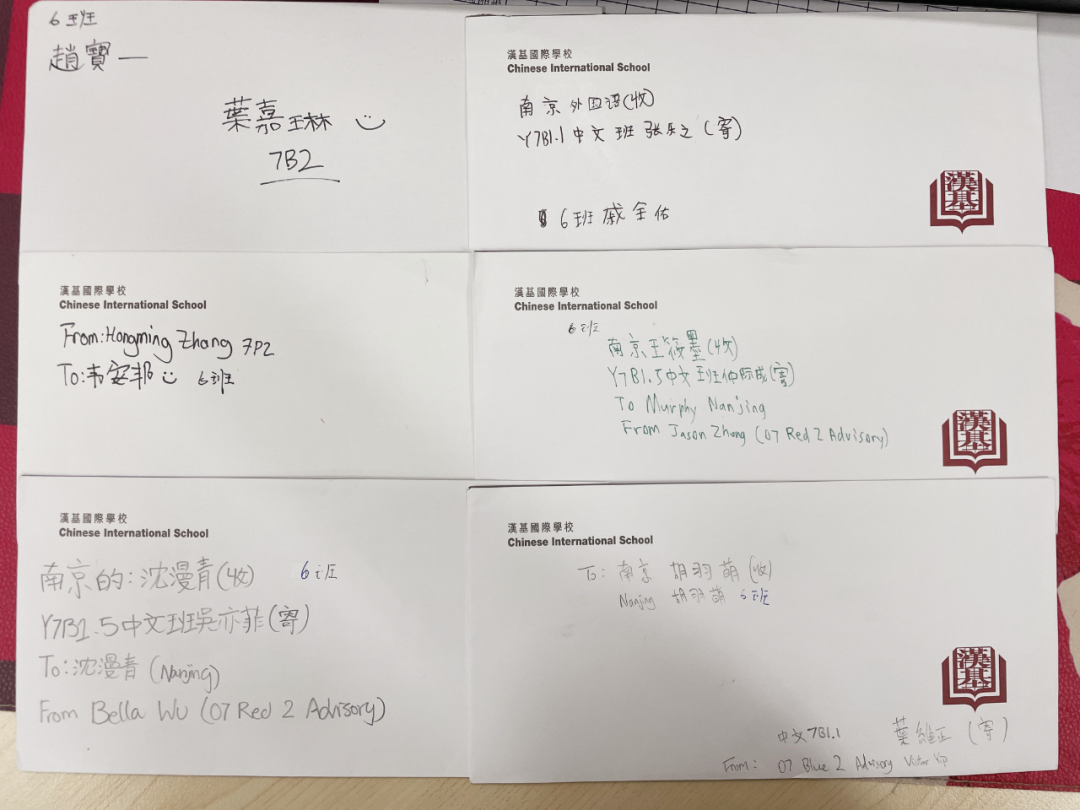 6班
趙寶一
葉嘉琳
7B2
漢基國際學校
Chinese International School
南京外国语(收)
Y7B1.1中文班 张乐之(寄)
6班 戚全佑
漢基
漢基國際學校
Chinese International School
From: Hongming Zhang 7P2
To: 韦安邦 6班
漢基國際學校
Chinese International School
6班
南京王筱墨(收)
Y7B1.5中文班仲际成(寄)
To Murphy Nanjing
From Jason Zhong (07 Red 2 Advisory)
漢基
漢基國際學校
Chinese International School
南京的:沈漫青(收) 6班
Y7B1.5中文班吳亦菲(寄)
To:沈漫青 (Nanjing)
From Bella Wu (07 Red 2 Advisory)
漢基國際學校
Chinese International School
To: 南京 胡羽萌(收)
Nanjing 胡羽萌 6班
漢基
中文7B1.1 葉維正(寄)
From: 07 Blue 2 Advisory Victor Yip